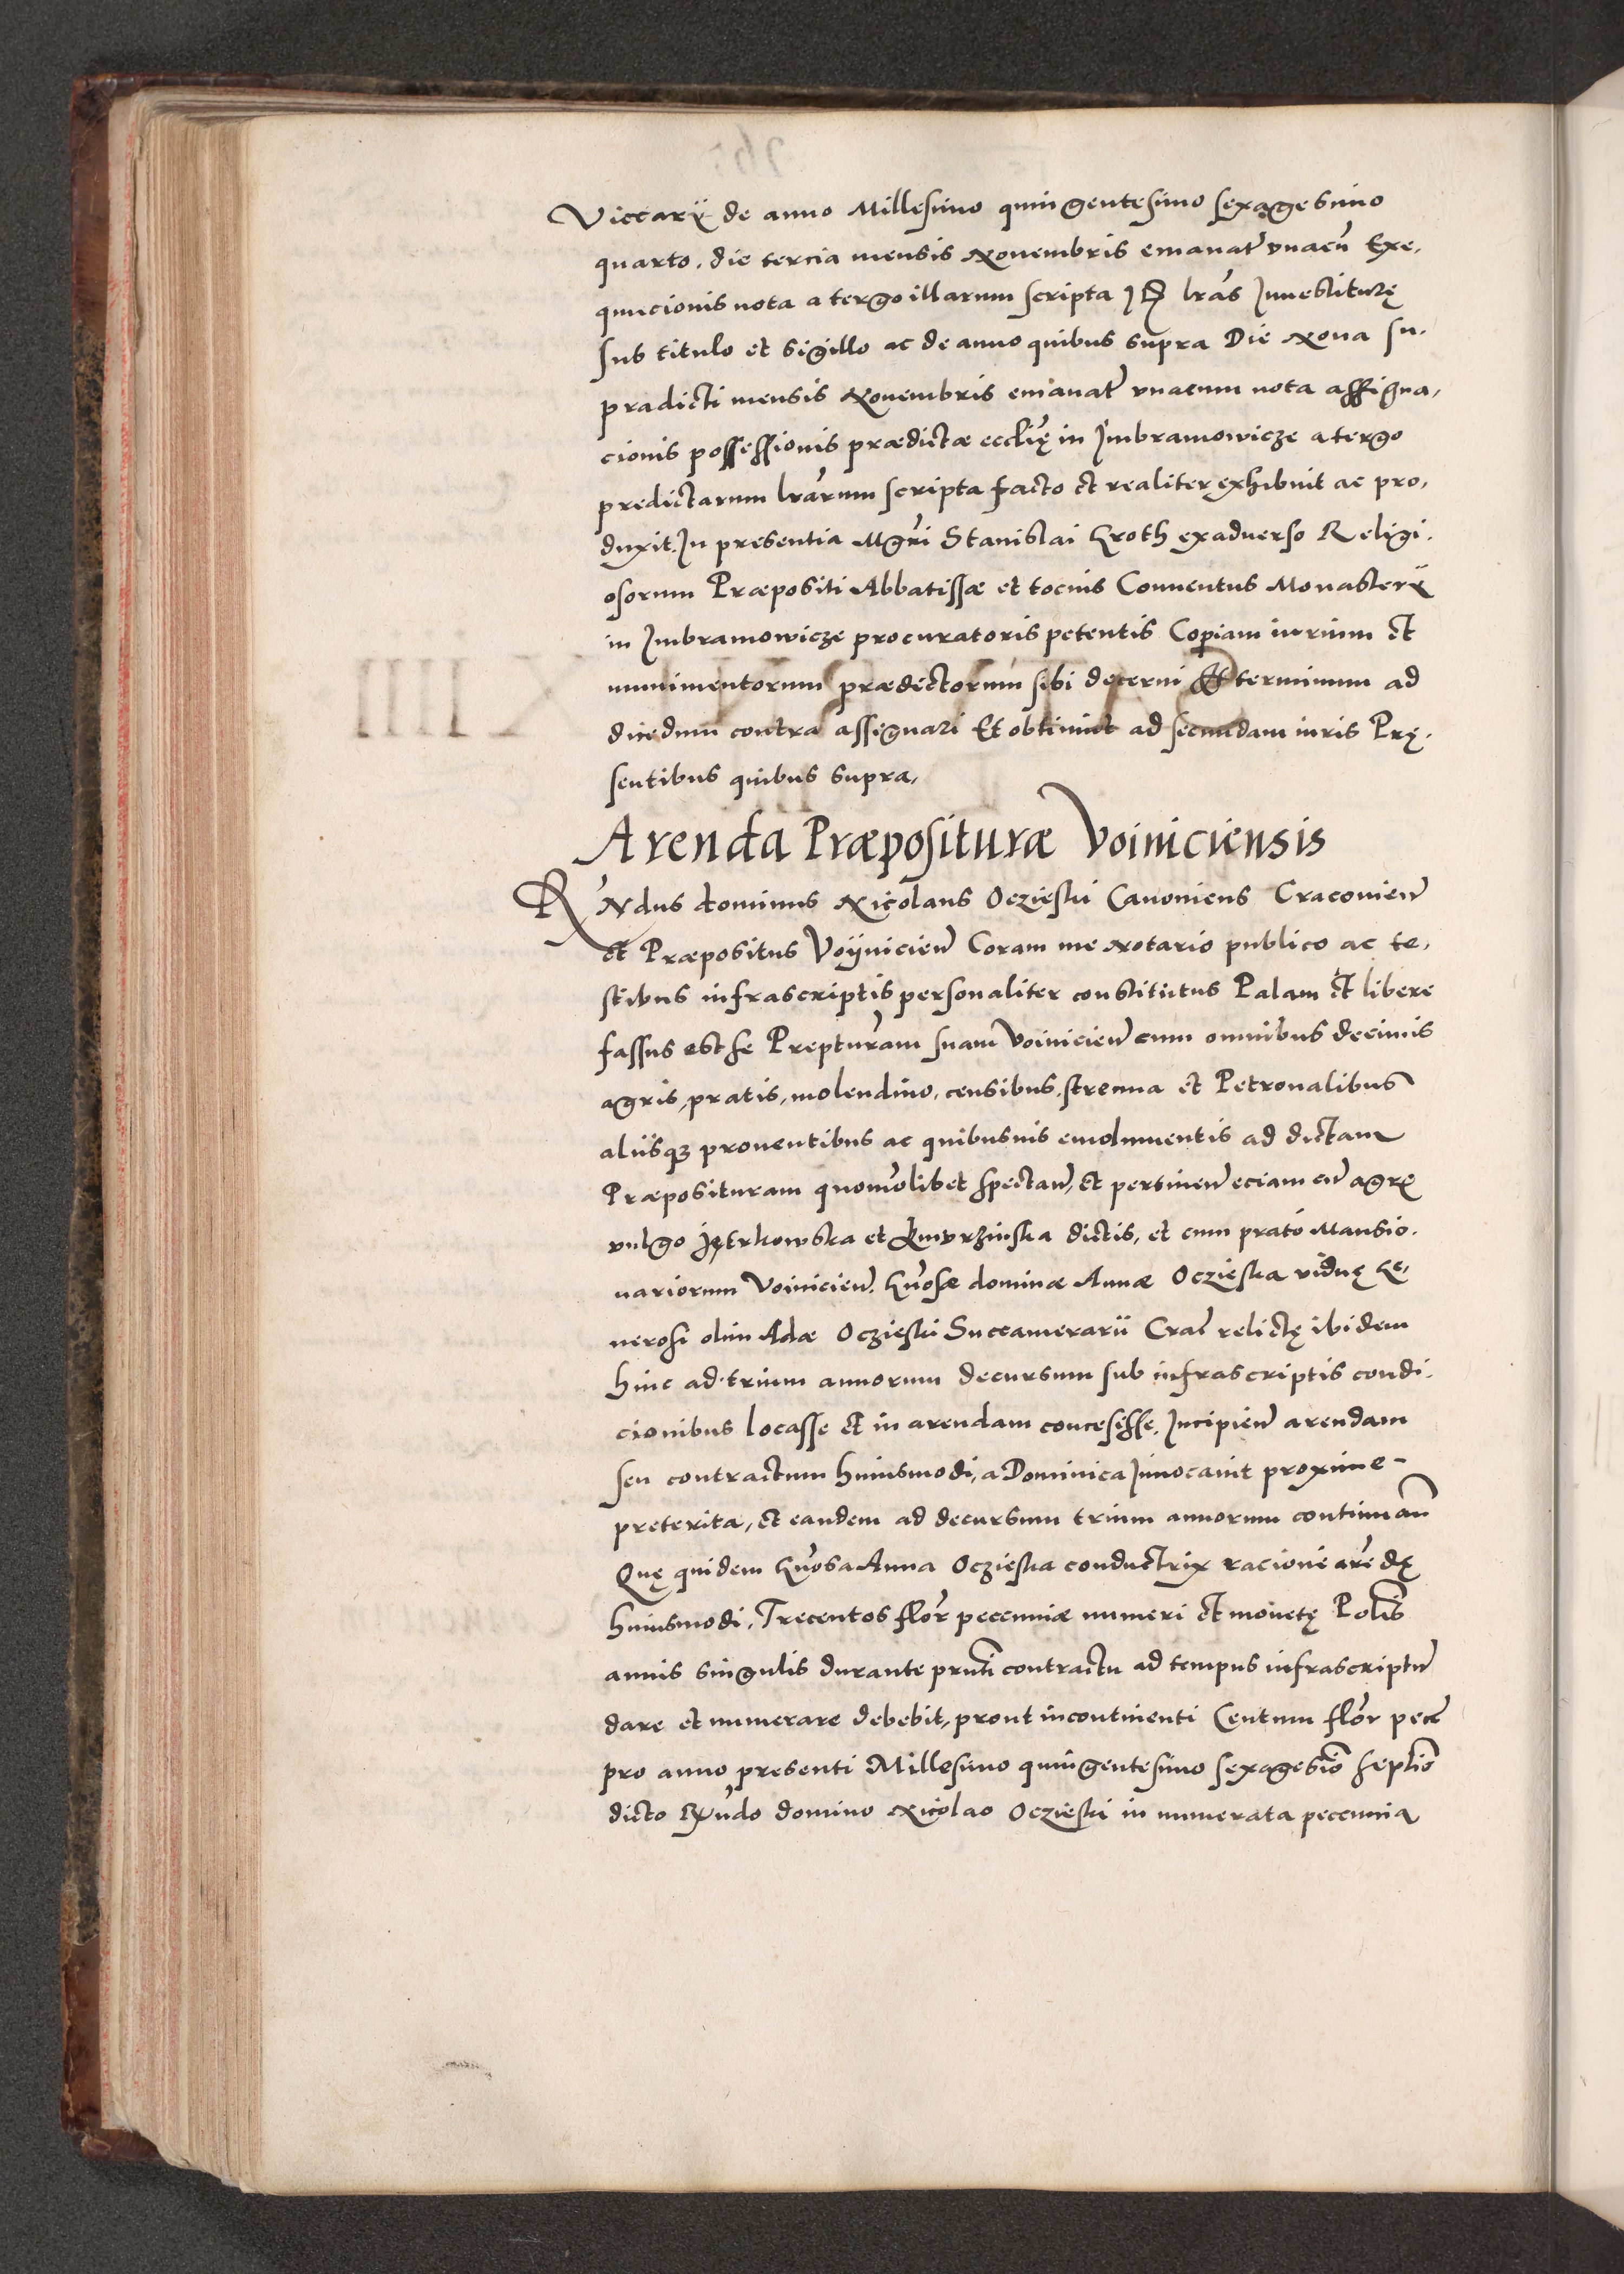 Viccarÿ de anno Millesimo quingentesimo sexagesimo
quarto. die tercia mensis Nouembris emanat̃ vnacũ Exe,
qnucionis nota a tergo illarum scripta Itẽ lr̃as Inuestiturę
sub titulo et sigillo ac de anno quibus supra Die Nona su.
pradicti mensis Nouembris emanat̃ vnacum nota assigna,
cionis possessionis prædictæ eccliẽ in Imbramowicze a tergo
predictarum lr̃arum scripta facto et realiter exhibuit ac pro,
duxit. In presentia Mgr̃i Stanislai Groth exaduerso Religi.
osorum Præpositi Abbatissæ et tocius Conuentus Monasterÿ
in Imbramowicze procuratoris petentis Copiam iurium et
munimentorum prædictorum sibi decerni Et terminum ad
dicedum contra assignari Et obtinuit ad secundam iuris Prę.
sentibus quibus supra,
Arenda Præposituræ Voiniciensis
RNdus dominus Nicolaus Oczieski Canonicus Cracovień
et Præpositus Voÿnicień Coram me Notario publico ac te,
stibus infrascriptis personaliter constitutus Palam et libere
fassus est se Prepturam̃ suam Voinicień cum omnibus decimis
agris, pratis, molendino, censibus, strenua et Petronalibus
aliisqʒ prouentibus ac quibusuis emolumentis ad dictam
Præposituram quomõlibet spectań, et pertineń eciam cũ agrę
vulgo Jętrkowska et Kmyrzinska dictis, et cum prato Mansio.
nariorum Voinicień. Gñosæ dominæ Annæ Oczieska viduę Ge,
nerosi olim Adæ Oczieski Succamerarii Crac̃ relictę ibidem
hinc ad trium annorum decursum sub infrascriptis condi.
cionibus locasse et in arendam concesisse, Incipień arendam
seu contractum huiusmodi, a Dominica Inuocauit proxime
preterita, et eandem ad decursum trium annorum continuań
Quę quidem Gñosa Anna Oczieska conductrix racione arẽdę
huiusmodi, Trecentos flor̃ pecenniæ numeri et monetę Polɫis
annis singulis durante prñti contractu ad tempus infrascriptũ
dare et numerare debebit, prout incontinenti Centum flor̃ pec̃
pro anno presenti Millesimo quingentesimo sexagesiõ septiõ
dicto Rñdo domino Nicolao Oczieski in numerata pecennia